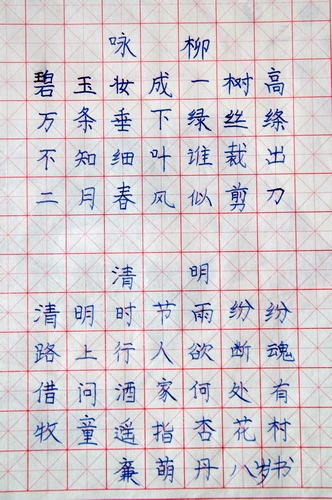 咏柳
碧玉妆成一树高
万条垂下绿丝绦
不知细叶谁裁出
二月春风似剪刀
清明
清明时节雨纷纷
路上行人欲断魂
借问酒家何处有
牧童遥指杏花村
廉萌丹八岁书